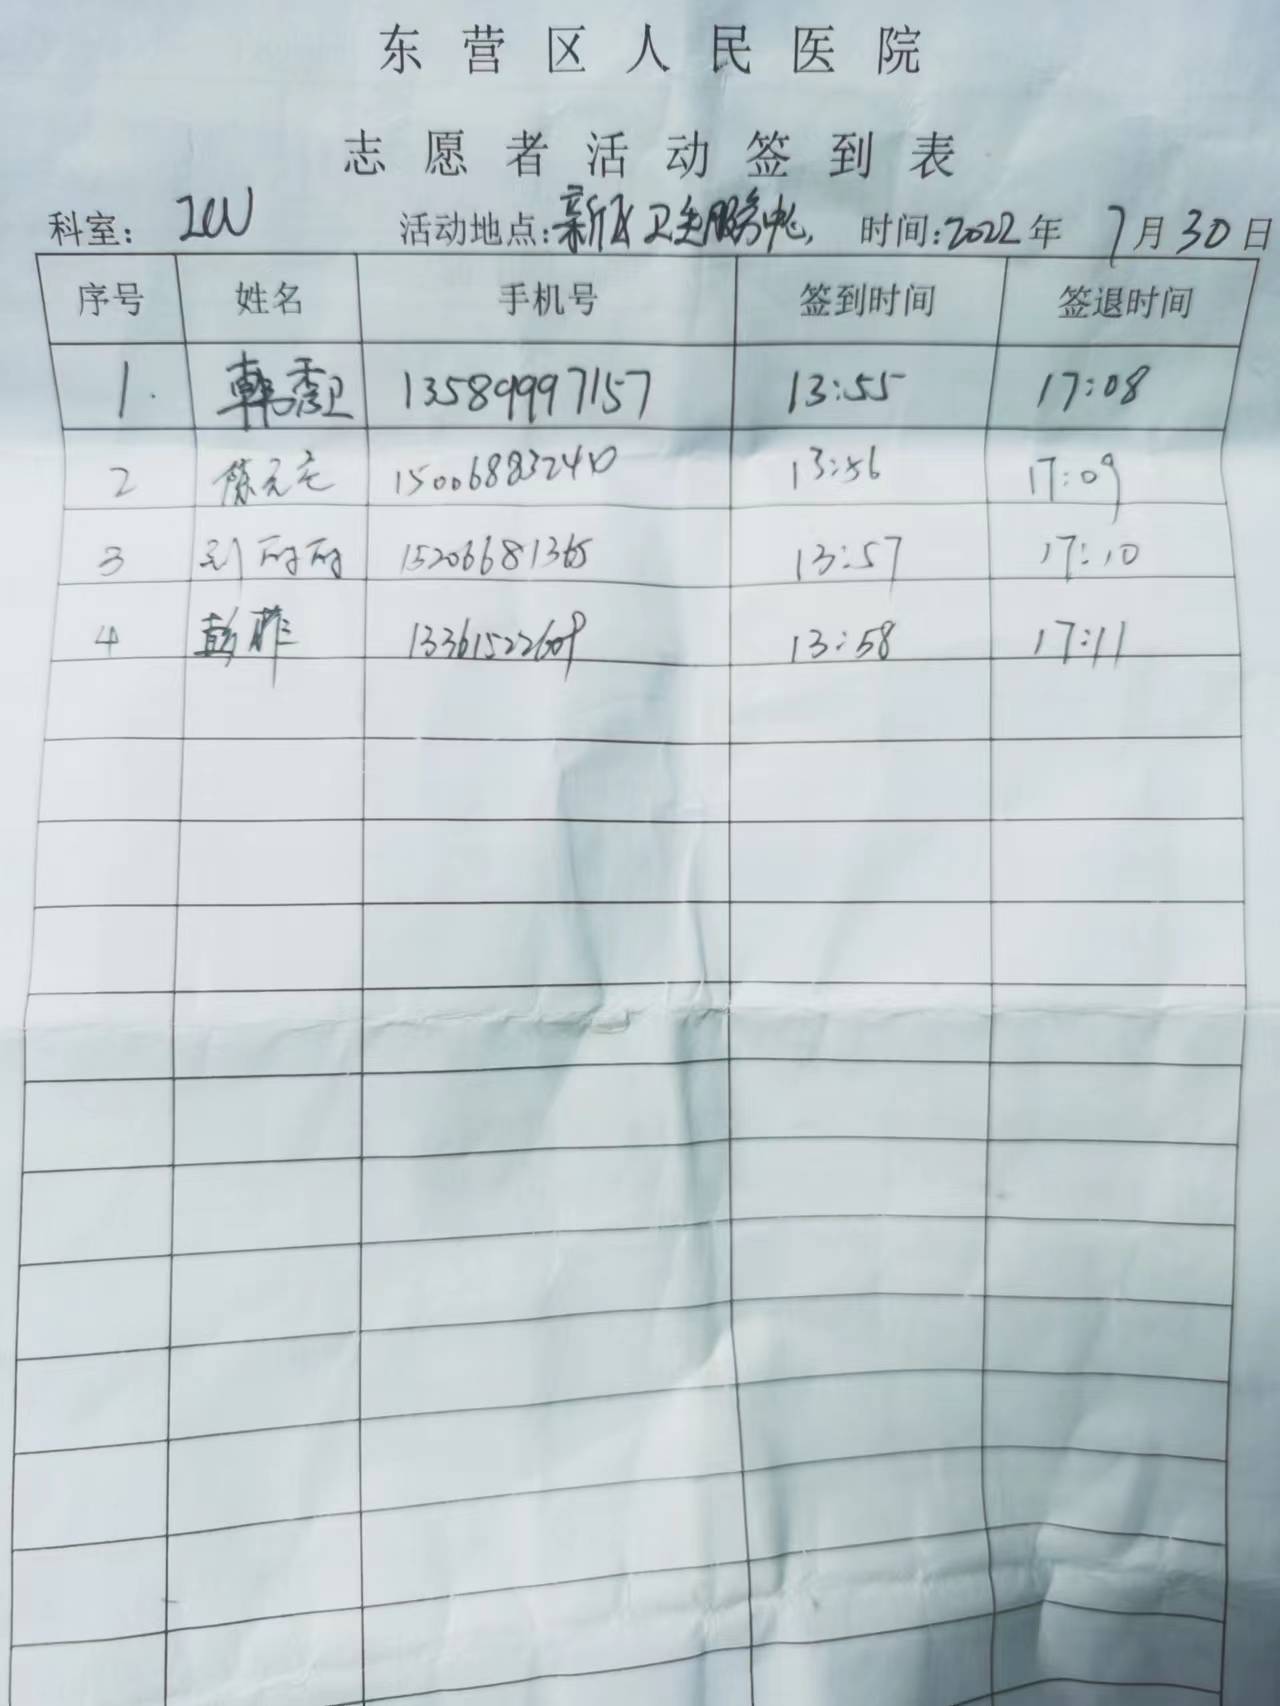 东营区人民医院
志愿者活动签到表
科室: ICU 活动地点: 新区卫生服务中心 时间: 2022年 7月30日
序号 姓名 手机号 签到时间 签退时间
1. 韩秀卫 13589997157 13:55 17:08
2 陈元元 15006883240 13:56 17:09
3 15206681365 13:57 17:10
4 彭菲 13361522609 13:58 17:11